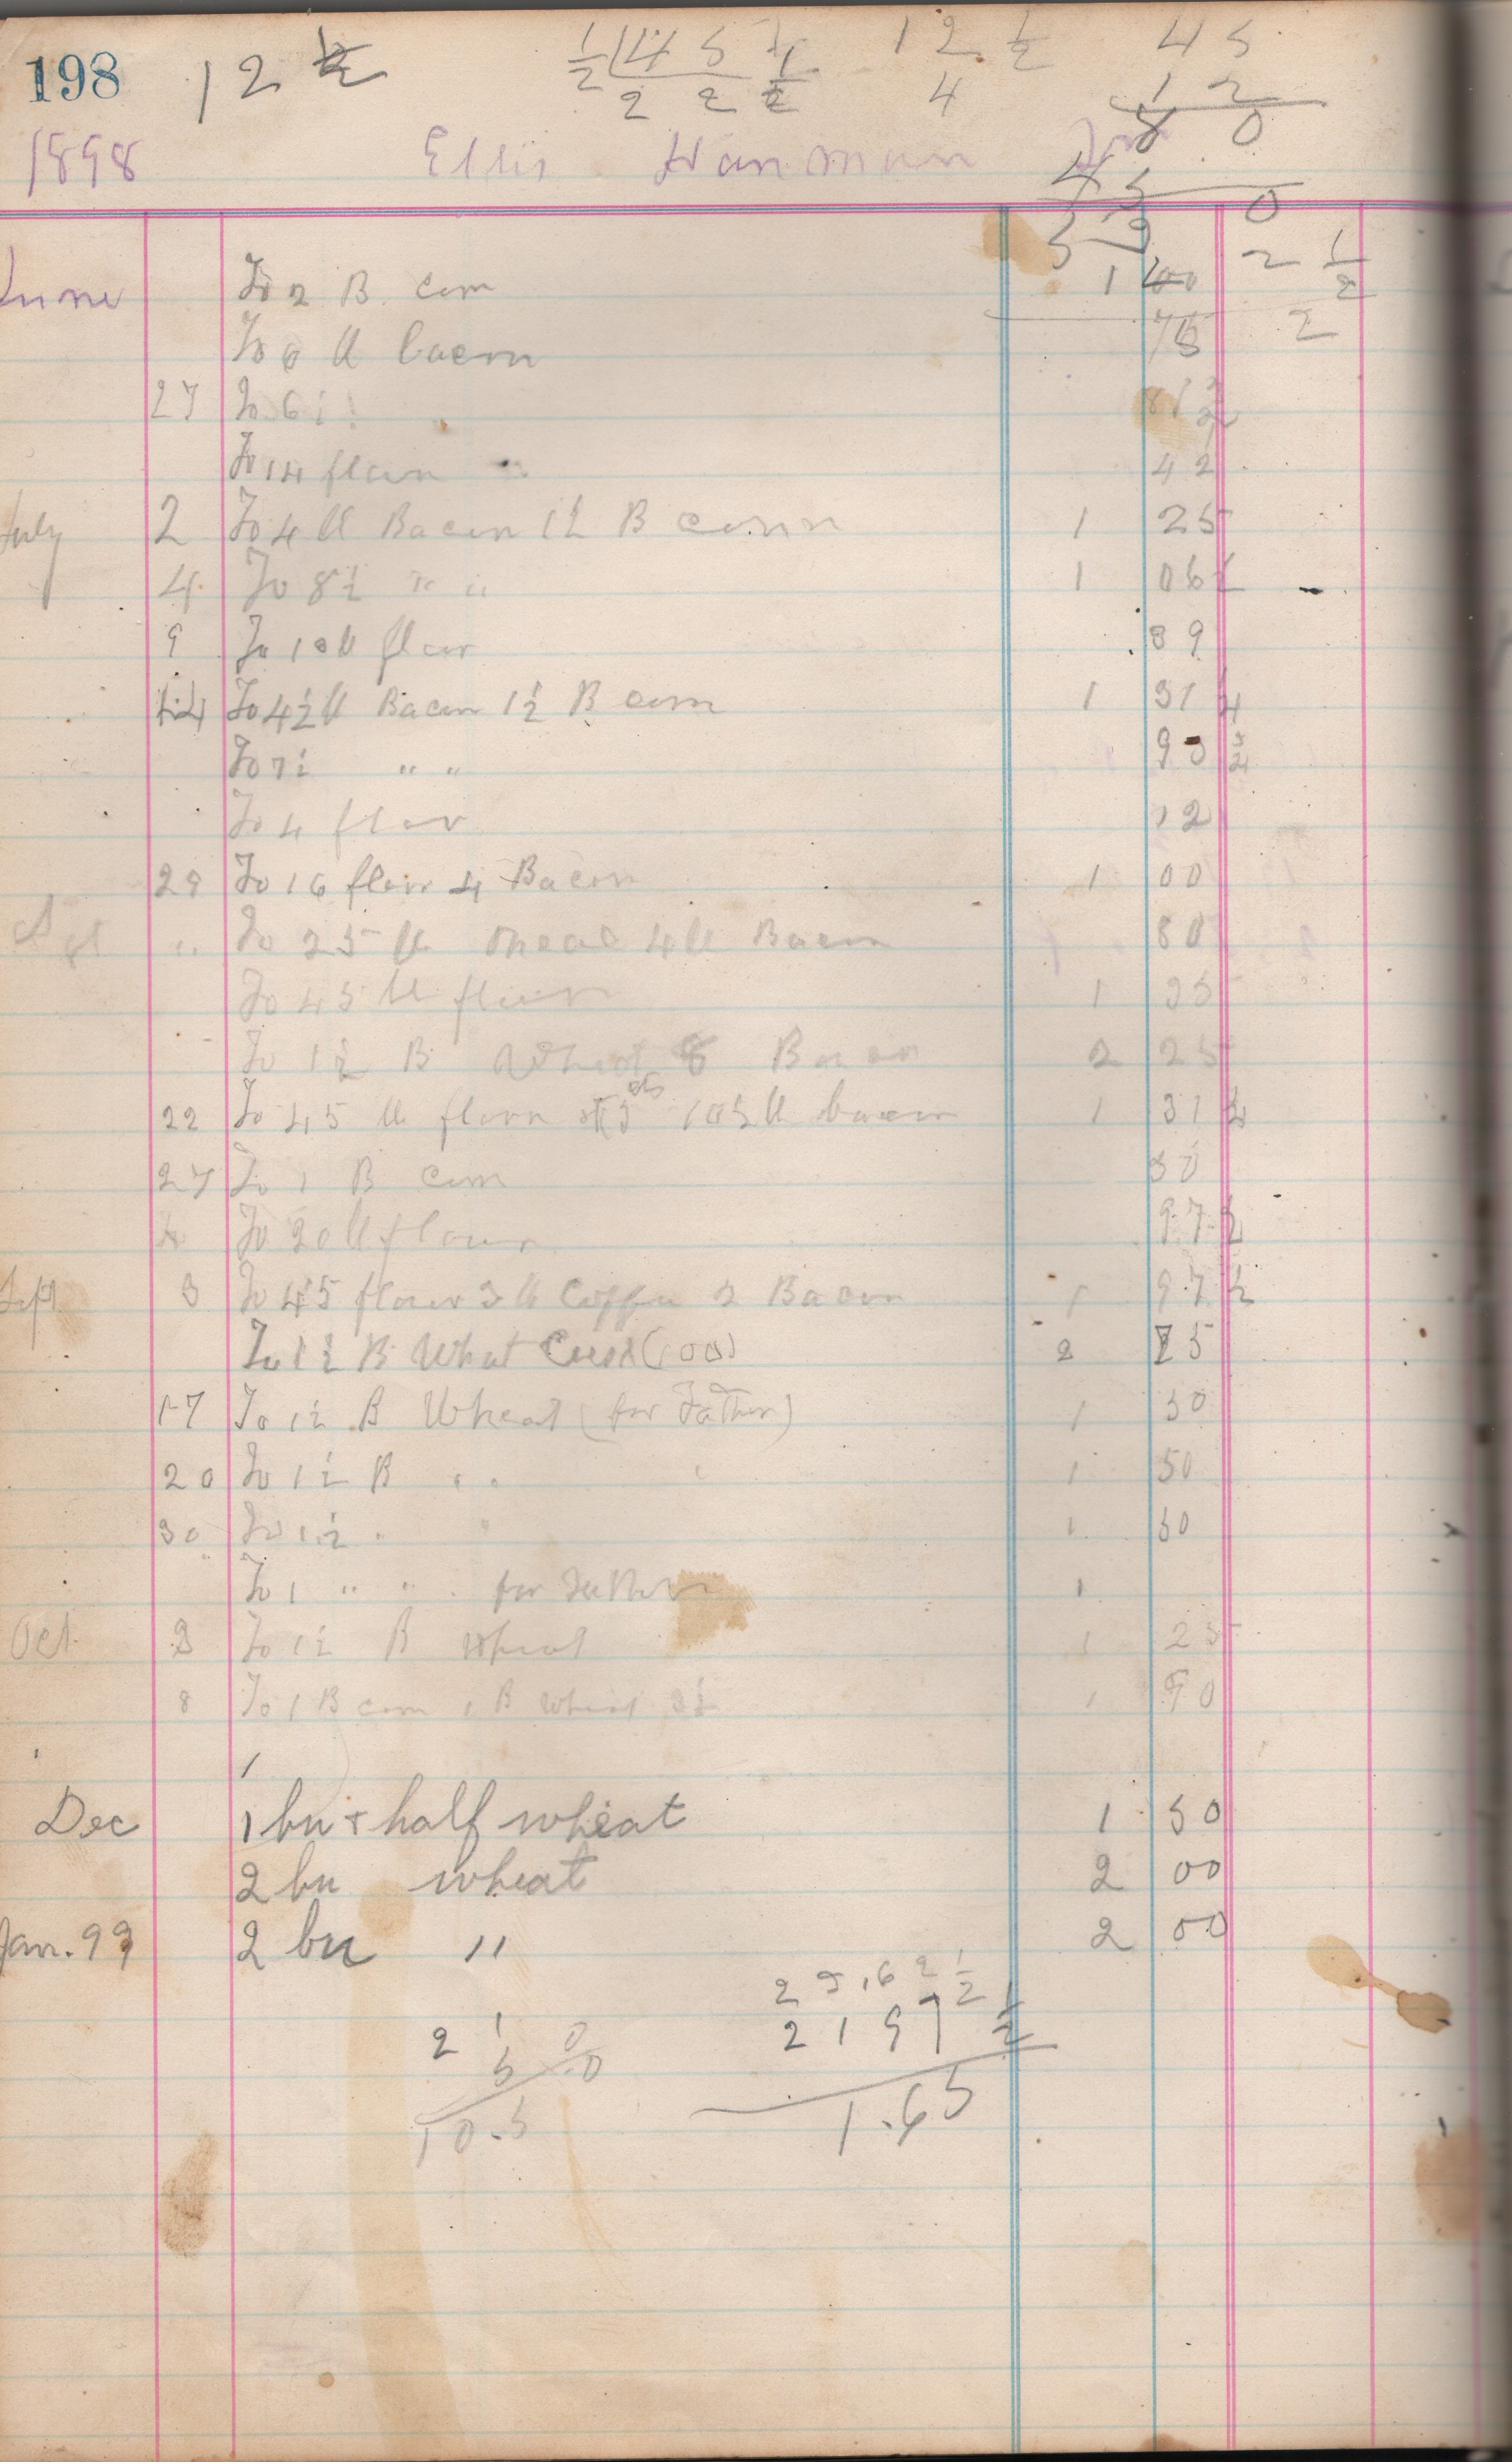 198 12 ½ ½ 45 ½ 12 ½ 45
2 2 ½ 4 12
8 0
1898 Ellis
45
0
June To 2 B. corn 1 00 2 ½
To 6 ll bacon 75 2
27 To 6½ 81
To 14 flour 42
July 2 To 4 ll Bacon 1½ B corn 1 25
4 To 8½ " " 1 06
9 To 13 ll flour 39
14 To 4½ ll Bacon 1½ B corn 1 31 ¼
To 7½ " " 93 ¾
To 4 flour 12
29 To 16 flour 4 Bacon 1 00
" To 25 ll meal 4 ll Bacon 80
To 45 ll flour 1 35
To 1½ B Wheat 6 Bacon 2 25
22 To 45 ll flour bacon 1 31 ¼
27 To 1 B corn 50
To 30 ll flour 97 ½
Sept 3 To 45 flour 3 ll Coffee 2 Bacon 1 97 ½
To 1½ B What (100) 2 75
17 To 1½ B Wheat (for Father) 1 50
20 To 1½ B " " 1 50
30 To 1½ " " 1 50
To 1 " " for Father 1
Oct. 3 To 1½ B wheat 1 25
8 To 1 B corn 1 B wheat 1 90
Dec 1 bu & half wheat 1 50
2 bu wheat 2 00
Jan. 99 2 bu " 2 00
2 1 0 2 3.62 ½
5 0 2197 ½
10.5 1.65